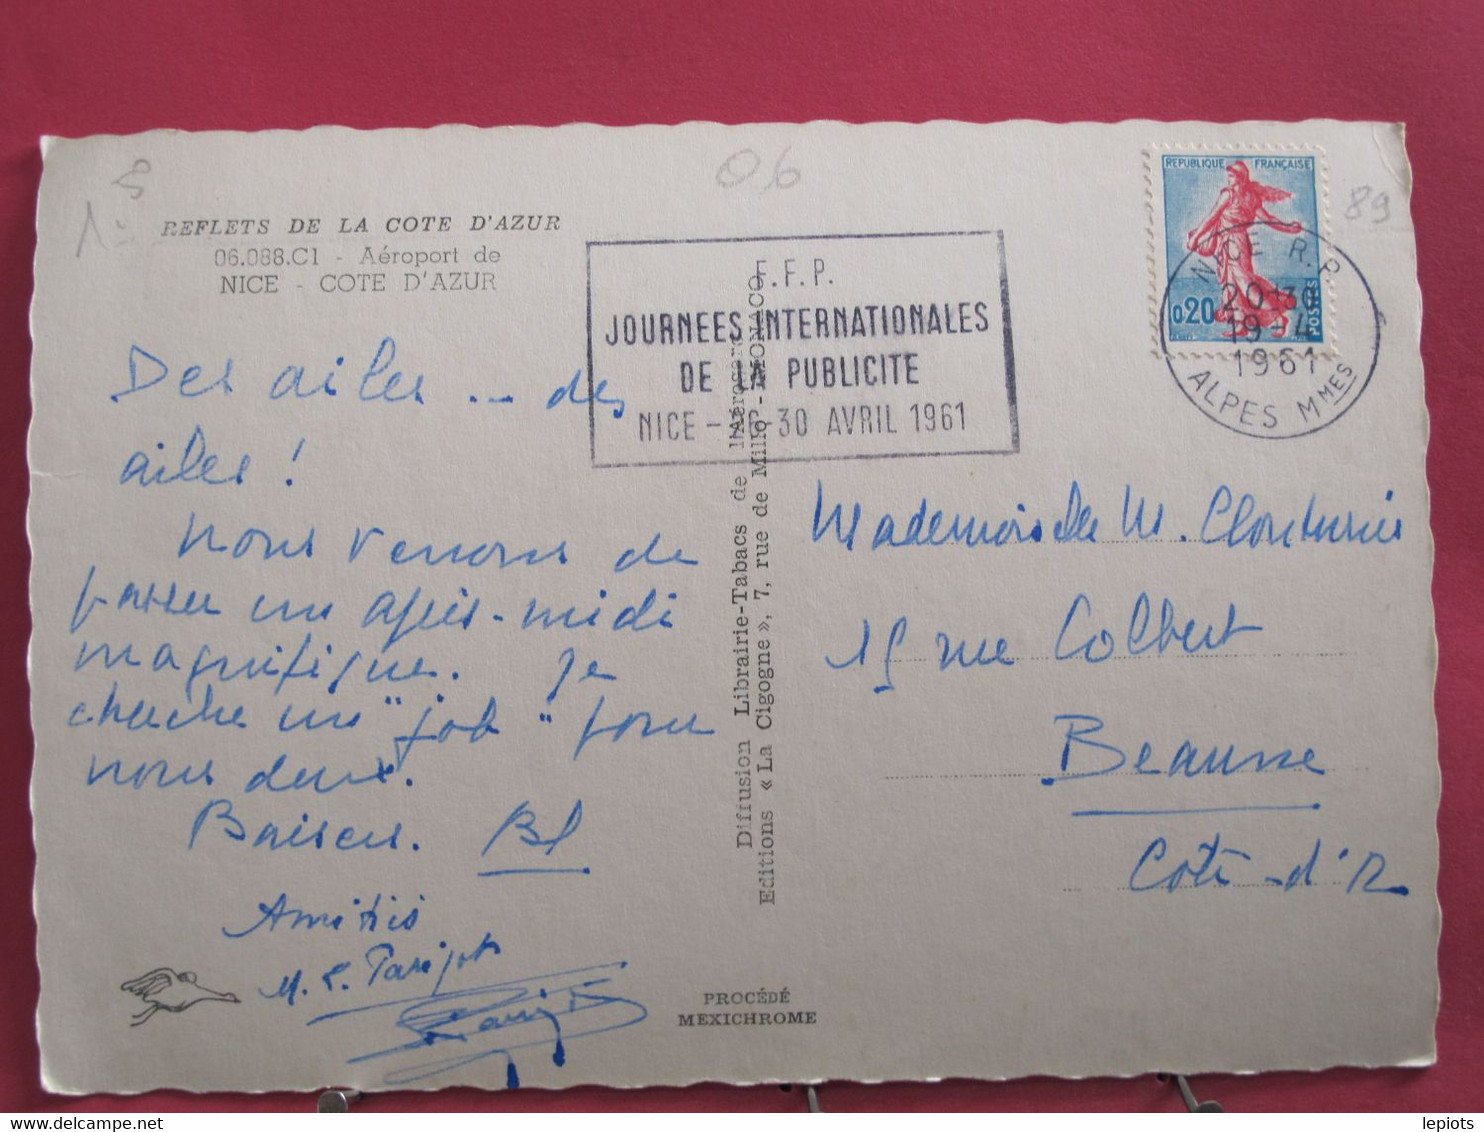 06
89
REFLETS DE LA COTE D'AZUR
06.088.C1 - Aéroport de
NICE - COTE D'AZUR
Des ailes ... des
ailes !
Nous venons de
passer un après-midi
magnifique. Je
cherche un "job" pour
nous deux.
Baisers. Bl
Amitiés
M. L. Parizot
F.F.P.
JOURNEES INTERNATIONALES
DE LA PUBLICITE
NICE - 30 AVRIL 1961
Diffusion Librairie-Tabacs de l'Aérogare
Editions « La Cigogne », 7, rue de Millo - MONACO
PROCÉDÉ
MEXICHROME
REPUBLIQUE FRANÇAISE
0,20
POSTES
NICE R.P.
20 H 30
19-4
1961
ALPES MMES
Mademoiselle M.
15 rue Colbert
Beaune
Côte-d'Or
lepiots